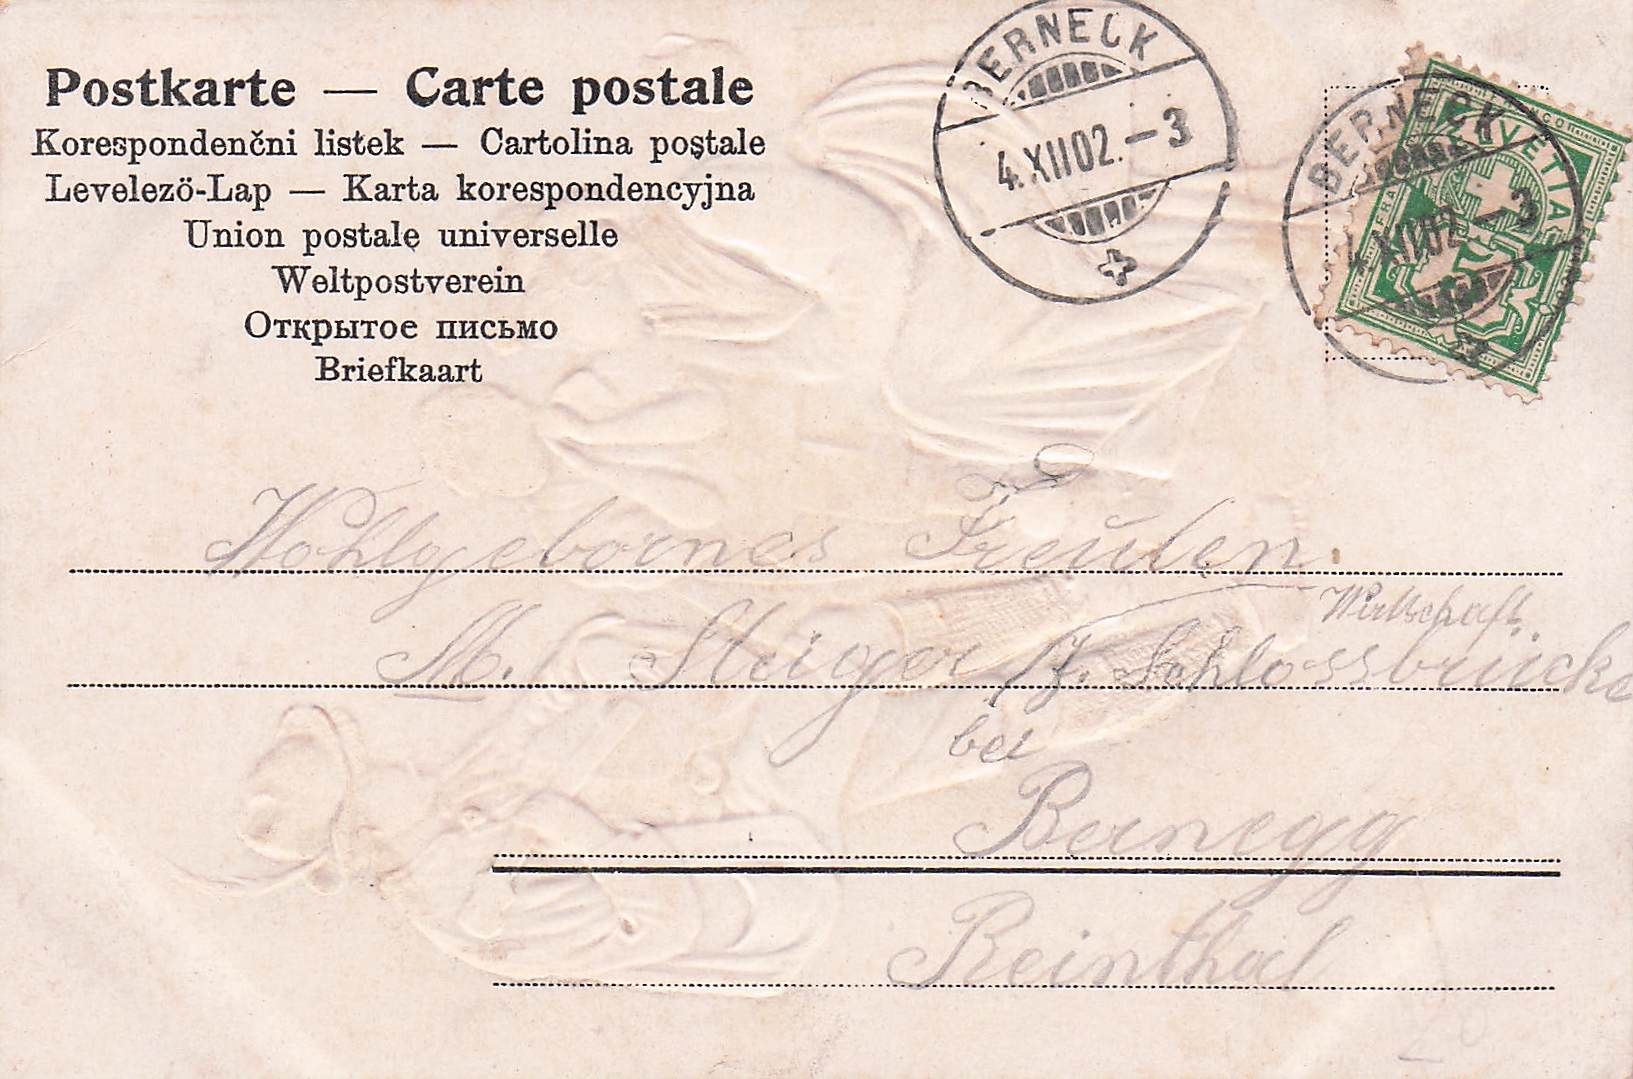 Postkarte — Carte postale
Korespondenčni listek — Cartolina postale
Levelezö-Lap — Karta korespondencyjna
Union postale universelle
Weltpostverein
Открытое письмо
Briefkaart
BERNECK
4.XII.02.–3
BERNECK
4.XII.02.–3
HELVETIA
FRANCO
Wohlgebornes Freulen.
M. Steiger z. Schlossbrücke
Wirtschaft
bei
Bernegg
Reinthal